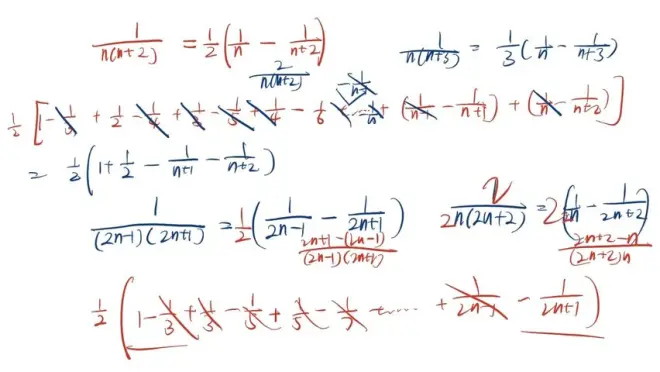 1/(n(n+2)) = 1/2 (1/n - 1/(n+2)) 1/(n(n+3)) = 1/3 (1/n - 1/(n+3))
2/(n(n+2))
1/2 [1 - 1/3 + 1/2 - 1/4 + 1/3 - 1/5 + 1/4 - 1/6 ... - 1/n + (1/(n-1) - 1/(n+1)) + (1/n - 1/(n+2))]
= 1/2 (1 + 1/2 - 1/(n+1) - 1/(n+2))
1/((2n-1)(2n+1)) = 1/2 (1/(2n-1) - 1/(2n+1)) 2/(2n(2n+2)) = 2(1/2n - 1/(2n+2))
(2n+1-(2n-1))/((2n-1)(2n+1)) (2n+2-n)/((2n+2)n)
1/2 (1 - 1/3 + 1/3 - 1/5 + 1/5 - 1/7 + ...... + 1/(2n-1) - 1/(2n+1))